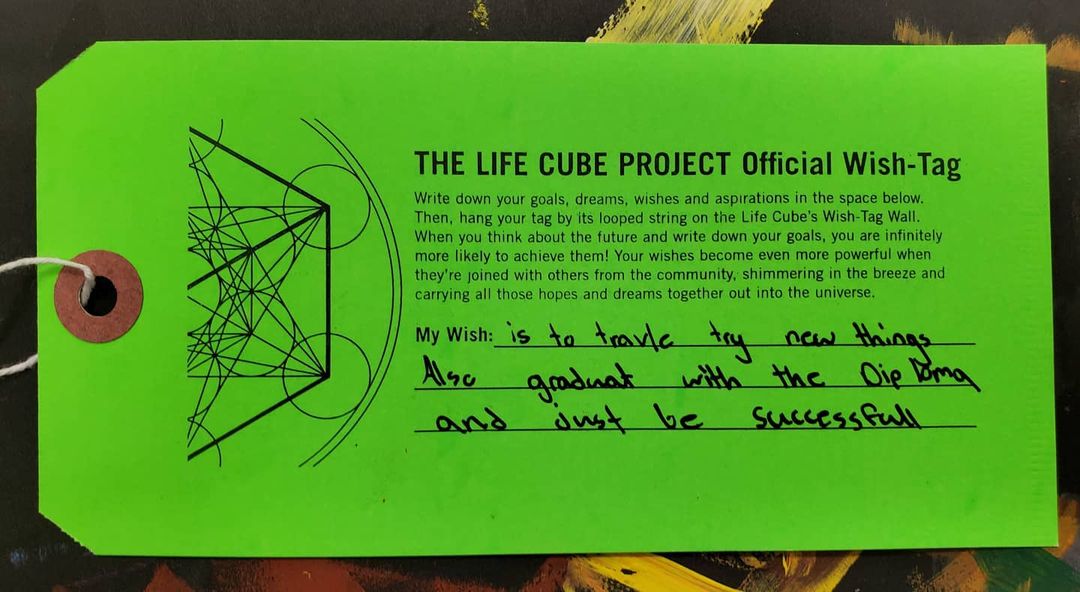 THE LIFE CUBE PROJECT Official Wish-Tag
Write down your goals, dreams, wishes and aspirations in the space below.
Then, hang your tag by its looped string on the Life Cube's Wish-Tag Wall.
When you think about the future and write down your goals, you are infinitely
more likely to achieve them! Your wishes become even more powerful when
they're joined with others from the community, shimmering in the breeze and
carrying all those hopes and dreams together out into the universe.
My Wish: is to travle try new things
Also graduat with the Diploma
and just be successfull